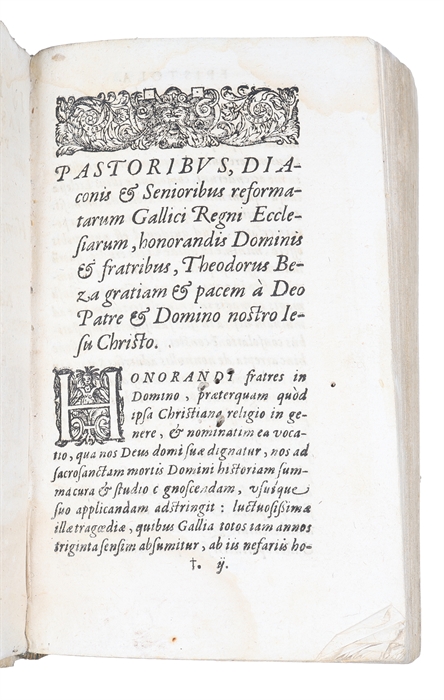 PASTORIBVS, DIA-
conis & Senioribus reforma-
tarum Gallici Regni Eccle-
siarum, honorandis Dominis
& fratribus, Theodorus Be-
za gratiam & pacem à Deo
Patre & Domino nostro Ie-
su Christo.
HONORANDI fratres in
Domino, præterquam quòd
ipsa Christiana religio in ge-
nere, & nominatim ea voca-
tio, qua nos Deus domi suæ dignatur, nos ad
sacrosanctam mortis Domini historiam sum-
ma cura & studio c gnoscendam, vsuique
suo applicandam adstringit: luctuosissimæ
illæ tragœdiæ, quibus Gallia totos iam annos
triginta sensim absumitur, ab iis nefariis ho-
†. ij.